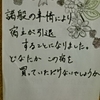 諸般の事情により
宿主が引退
することになりました。
どなたか この宿を
買っていただけないでしょうか